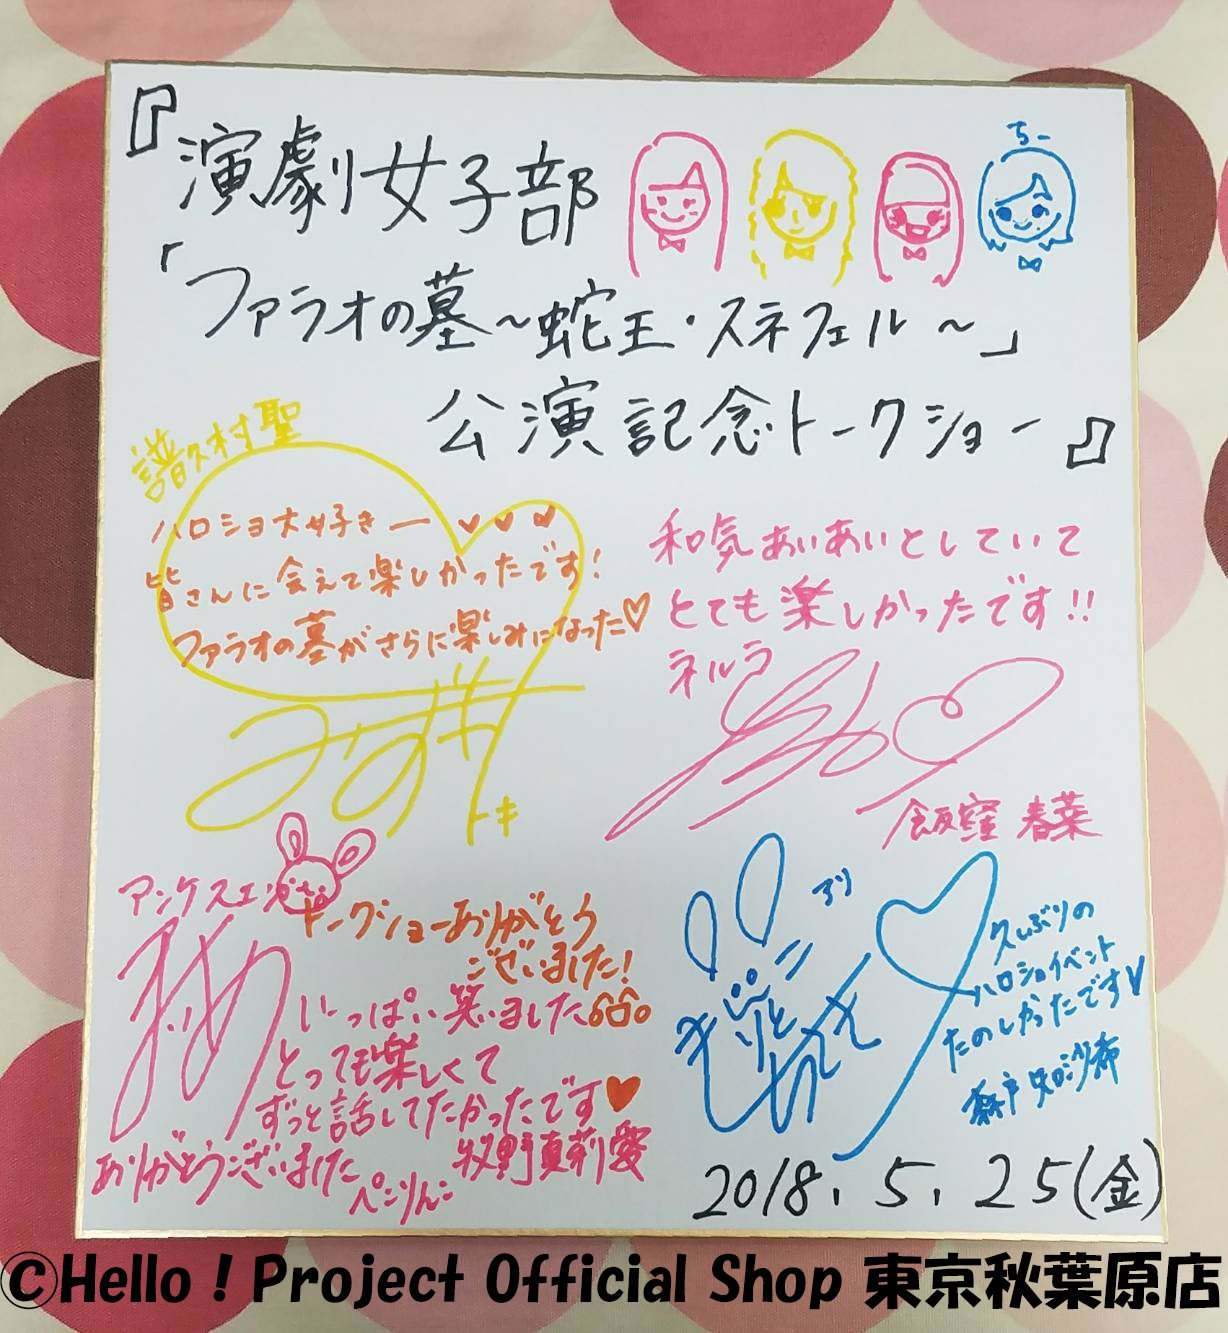 『演劇女子部
「ファラオの墓～蛇王・スネフェル～」
公演記念トークショー』
ちー
譜久村聖
ハロショ大好きー♥♥♥
皆さんに会えて楽しかったです!
ファラオの墓がさらに楽しみになった♡
みずき
トキ
和気あいあいとしていて
とても楽しかったです!!
ネルラ
飯窪 春菜
アンケスエン
トークショーありがとう
ございました!
いーっぱい笑いました
とっても楽しくて
ずっと話してたかったです♥
ありがとうございました
牧野真莉愛
アリ
もりとちさき
久しぶりの
ハロショイベント
たのしかったです♥
森戸知沙希
2018.5.25(金)
©Hello ! Project Official Shop 東京秋葉原店